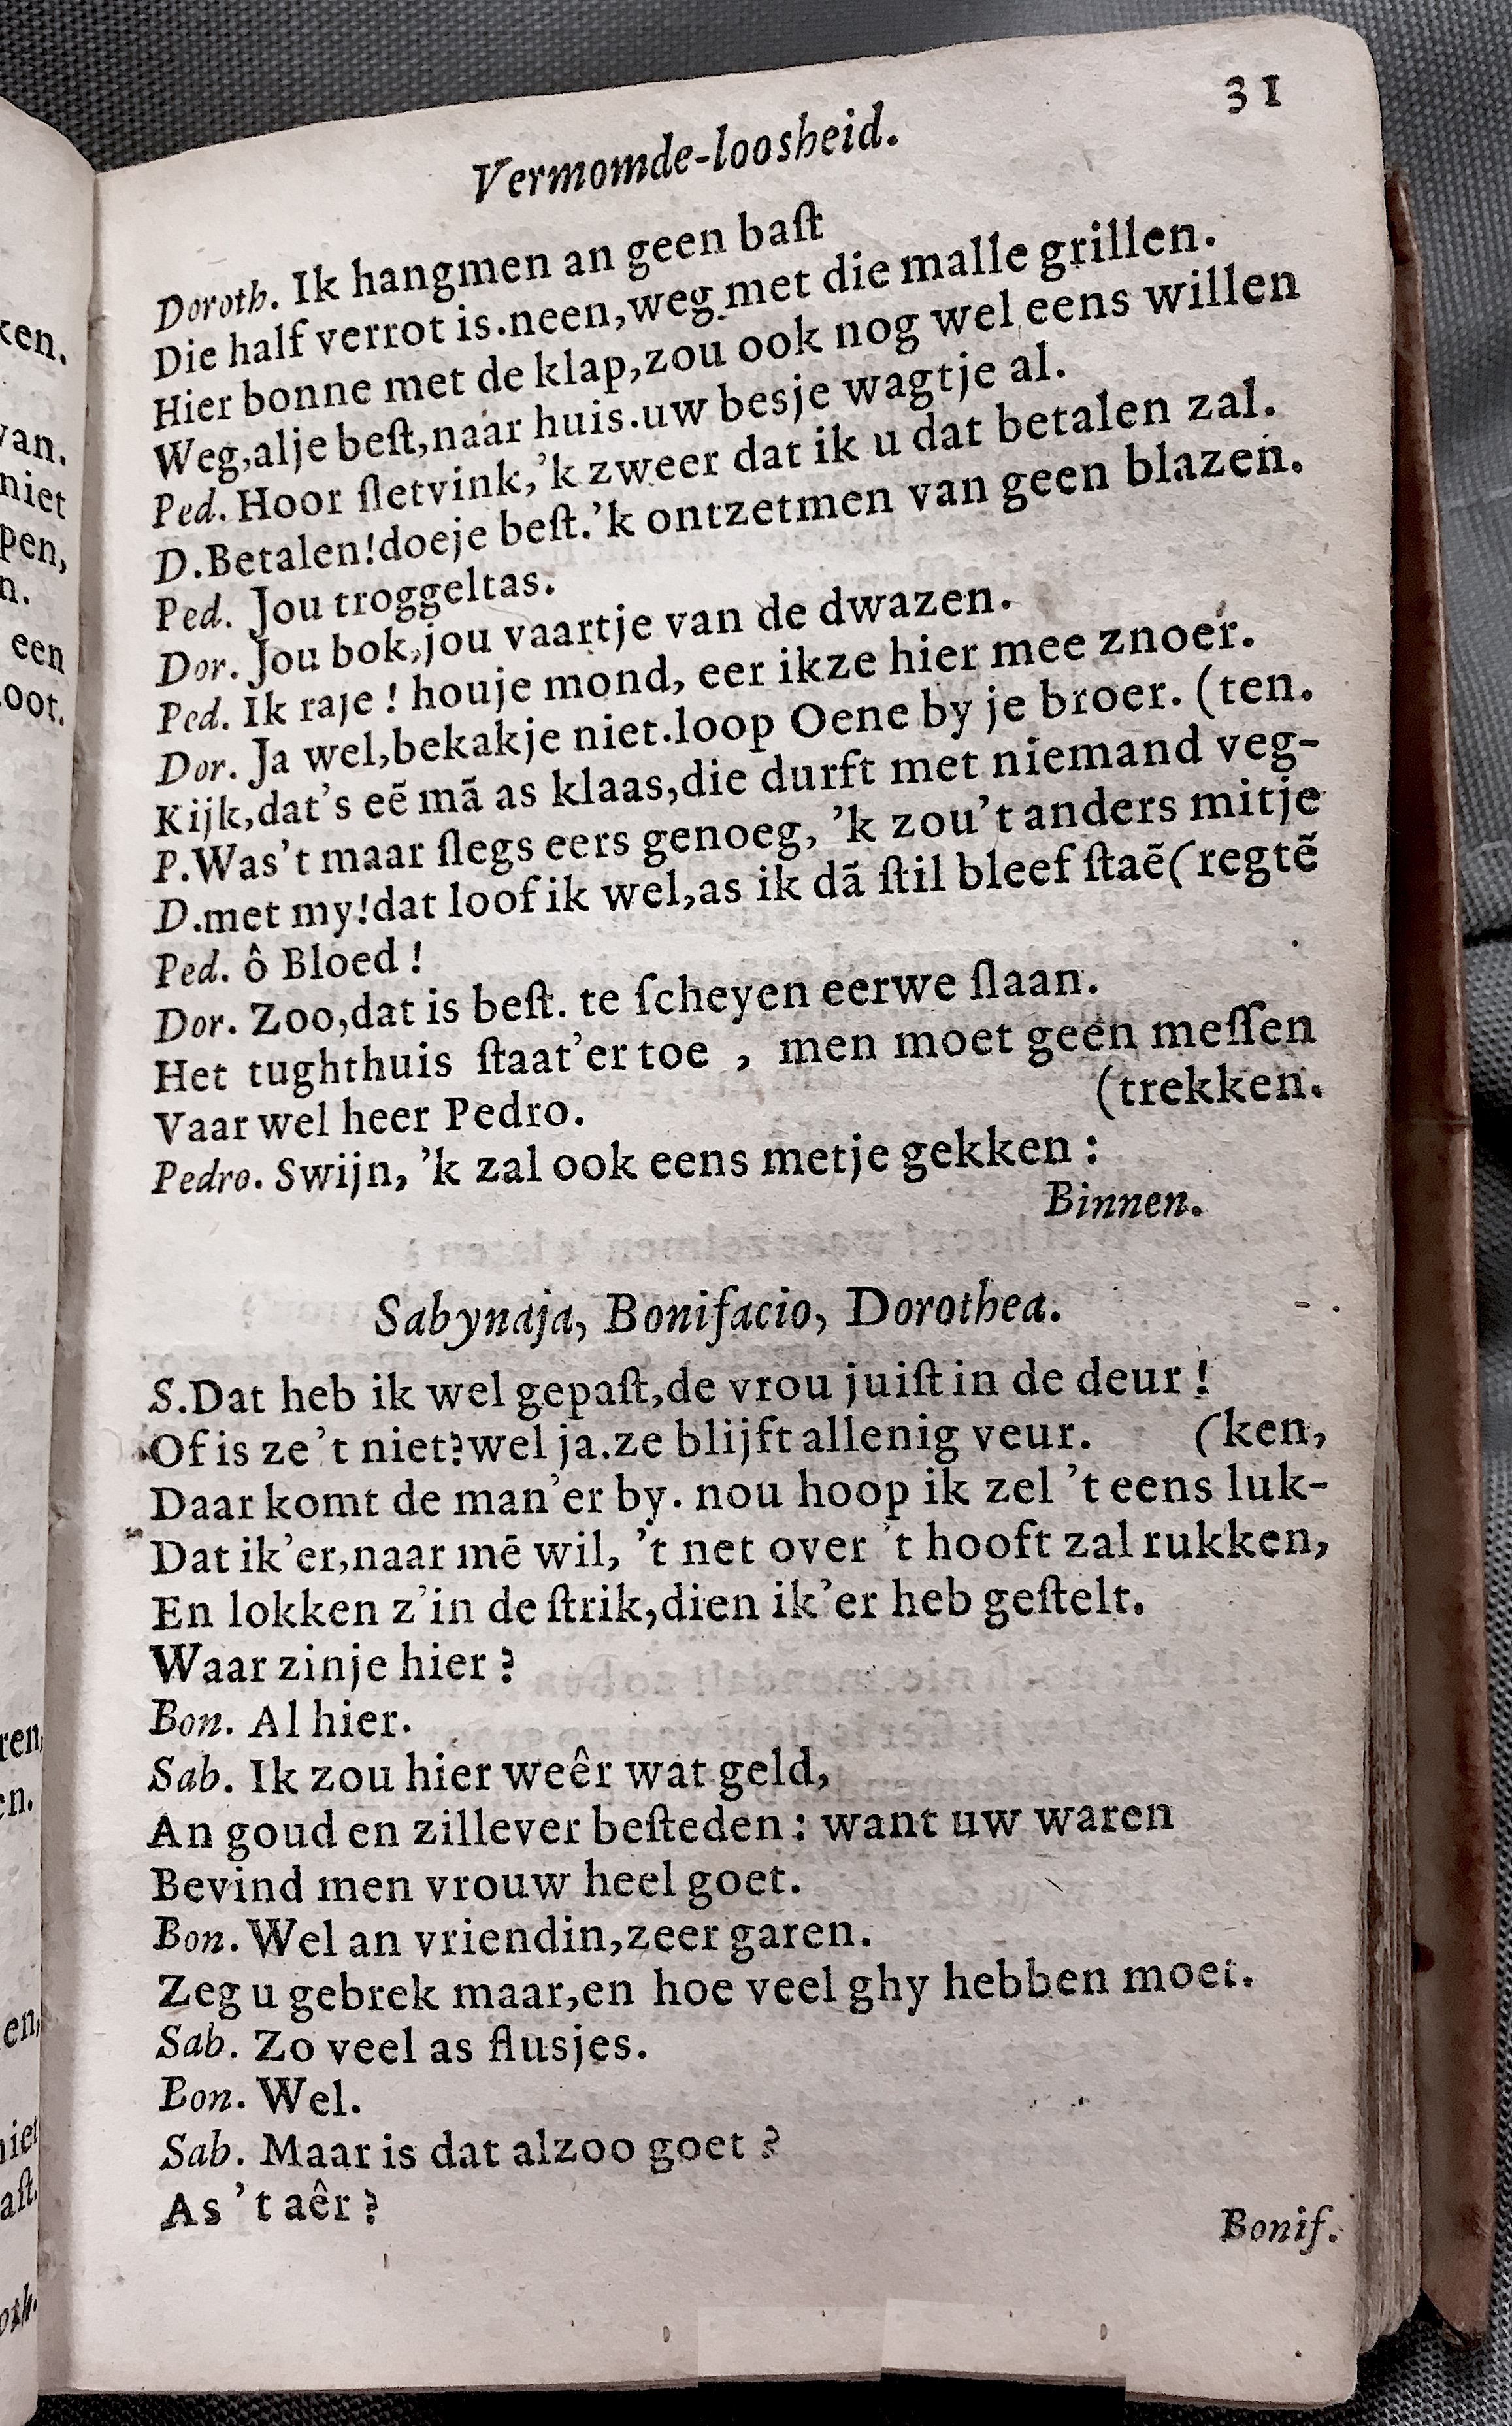 31
Vermomde-loosheid.
Doroth. Ik hangmen an geen baſt
Die half verrot is.neen,weg met die malle grillen.
Hier bonne met de klap,zou ook nog wel eens willen
Weg,alje beſt,naar huis.uw besje wagtje al.
Ped. Hoor ſletvink,'k zweer dat ik u dat betalen zal.
D.Betalen!doeje beſt.'k ontzetmen van geen blazen.
Ped. Jou troggeltas.
Dor. Jou bok,jou vaartje van de dwazen.
Ped. Ik raje ! houje mond, eer ikze hier mee znoer.
Dor. Ja wel,bekakje niet.loop Oene by je broer. (ten.
Kijk,dat's eẽ mã as klaas,die durft met niemand veg-
P.Was't maar ſlegs eers genoeg, 'k zou't anders mitje
D.met my!dat loof ik wel,as ik dã ſtil bleef ſtaẽ(regtẽ
Ped. ô Bloed !
Dor. Zoo,dat is beſt. te ſcheyen eerwe ſlaan.
Het tughthuis ſtaat'er toe , men moet geen meſſen
(trekken.
Vaar wel heer Pedro.
Pedro. Swijn, 'k zal ook eens metje gekken :
Binnen.
Sabynaja, Bonifacio, Dorothea.
S.Dat heb ik wel gepaſt,de vrou juiſt in de deur !
Of is ze 't niet?wel ja.ze blijft allenig veur. (ken,
Daar komt de man'er by. nou hoop ik zel 't eens luk-
Dat ik'er,naar mẽ wil, 't net over 't hooft zal rukken,
En lokken z'in de ſtrik,dien ik'er heb geſtelt.
Waar zinje hier ?
Bon. Al hier.
Sab. Ik zou hier weêr wat geld,
An goud en zillever beſteden : want uw waren
Bevind men vrouw heel goet.
Bon. Wel an vriendin,zeer garen.
Zeg u gebrek maar,en hoe veel ghy hebben moet.
Sab. Zo veel as flusjes.
Bon. Wel.
Sab. Maar is dat alzoo goet ?
As 't aêr ?
Bonif.
ken.
van.
niet
pen,
n.
een
oot.
ren,
en.
en,
niet
aſt.
oth.